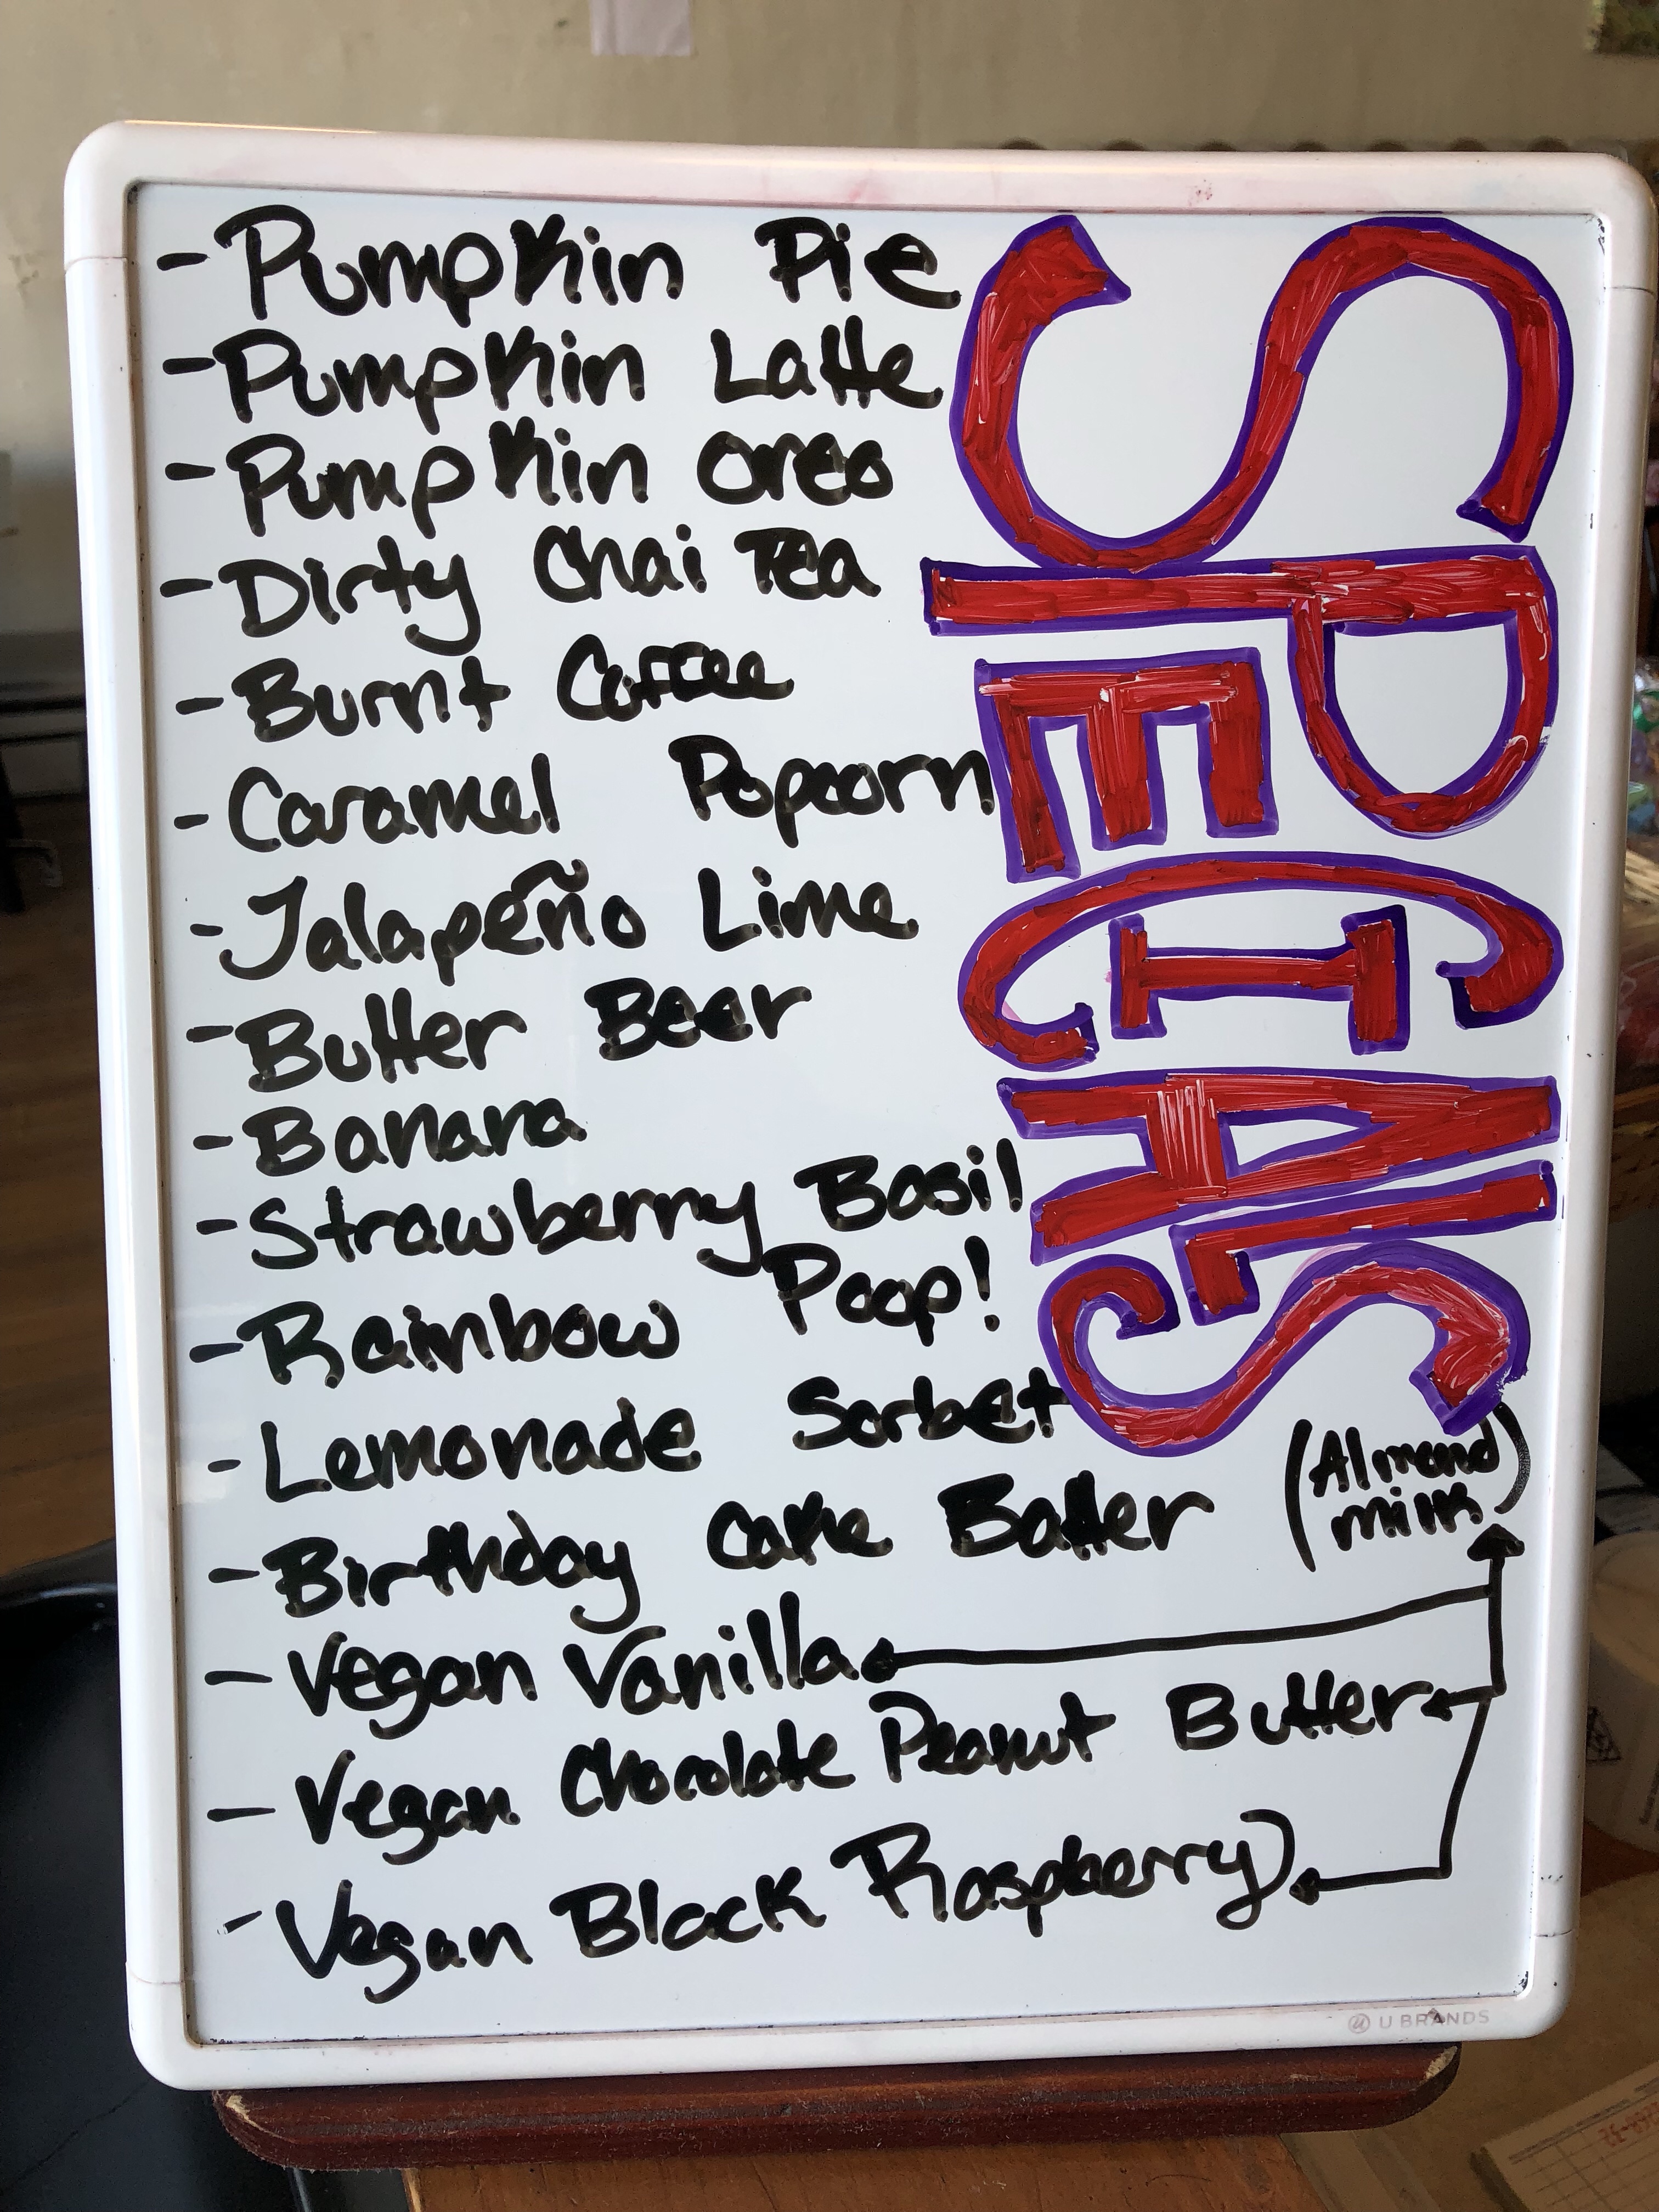 - Pumpkin Pie
- Pumpkin Latte
- Pumpkin Oreo
- Dirty Chai Tea
- Burnt Coffee
- Caramel Popcorn
- Jalapeño Lime
- Butter Beer
- Banana
- Strawberry Basil
- Rainbow Poop!
- Lemonade Sorbet
- Birthday Cake Batter
- Vegan Vanilla
- Vegan Chocolate Peanut Butter
- Vegan Black Raspberry
SPECIALS
(Almond
milk)
U BRANDS